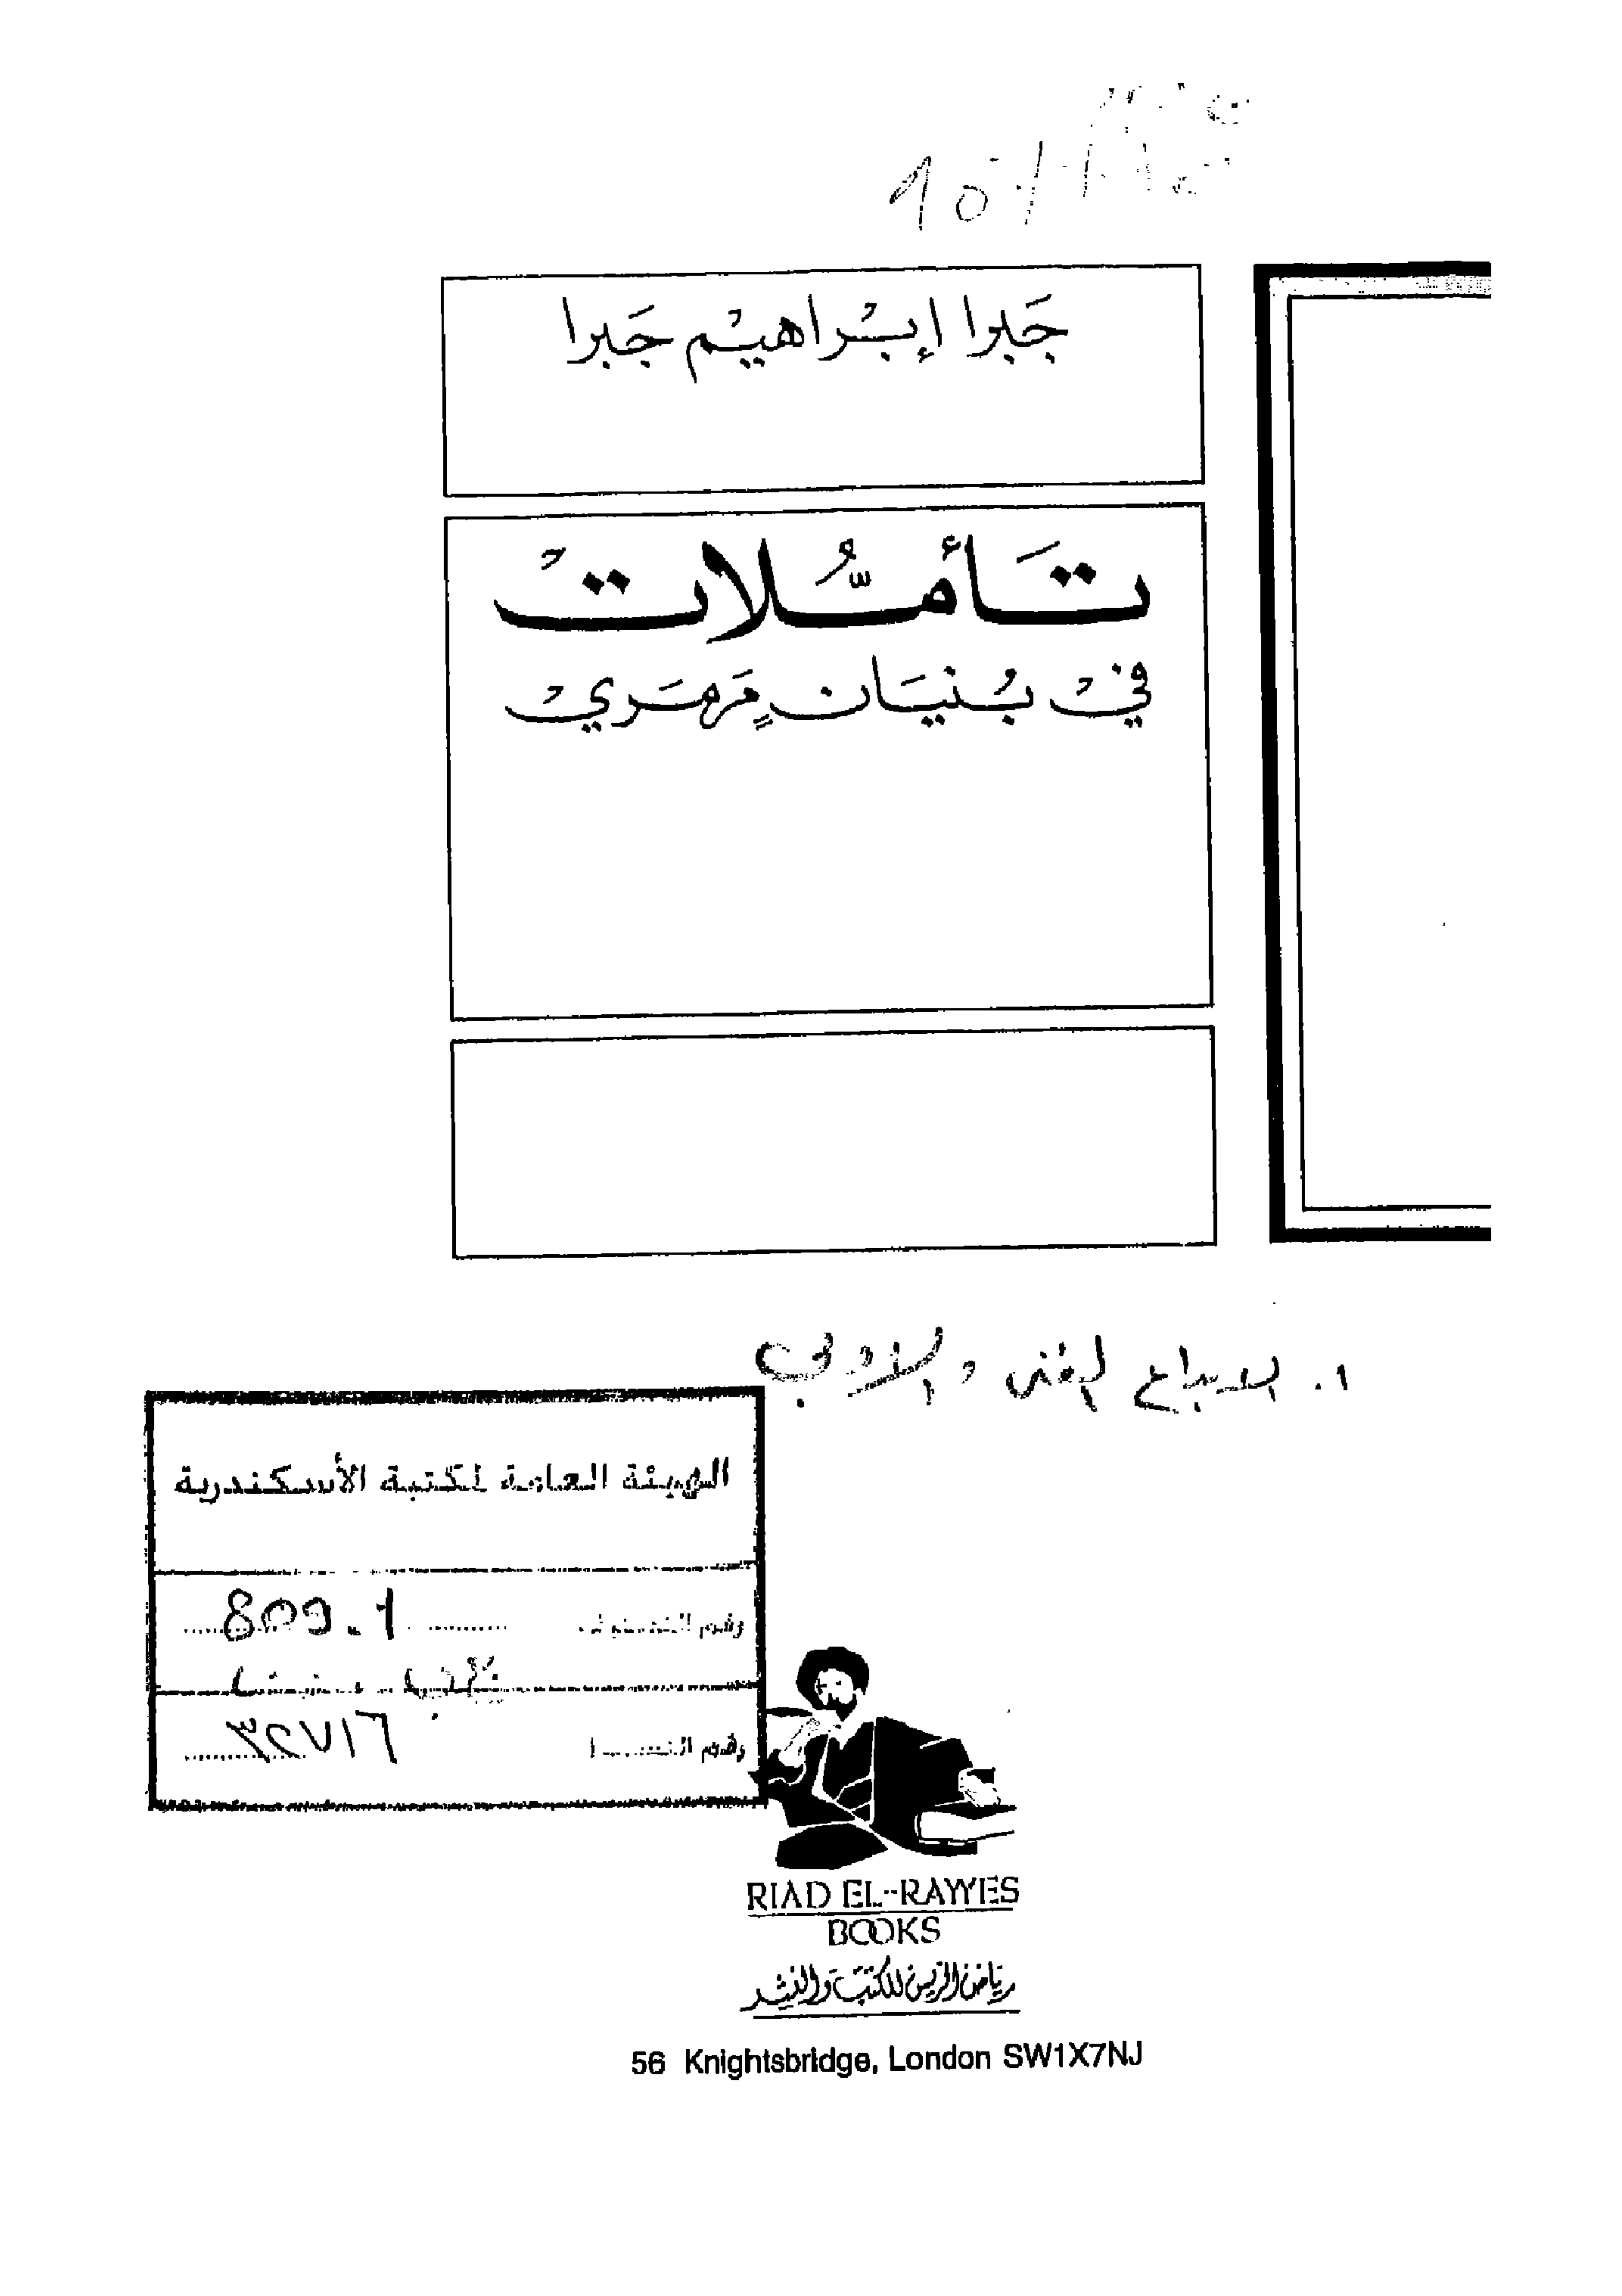 جَبرا إبْراهيْم جَبرا
تَأمُّلاتْ
فيْ بُنيَانٍ مَرمَريْ
١. الابداع الفنى والادبى
الهيئة العامة لمكتبة الأسكندرية
رقم التصنيف 809.1
رقم التسجيل ٣٢٧١٦
RIAD EL-RAYYES
BOOKS
رياض الريس للكتب والنشر
56 Knightsbridge, London SW1X7NJ